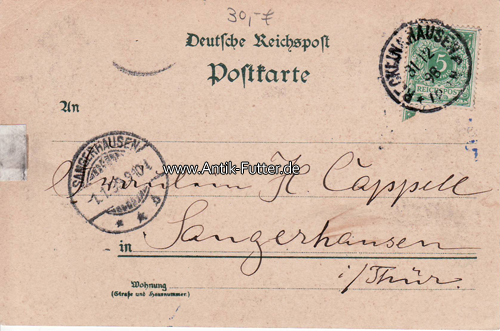 30,-€
Deutsche Reichspost
Postkarte
RECKLINGHAUSEN
31/12
98
5
REICHSPOST
An
SANGERHAUSEN
1.1.
www.Antik-Futter.de
Fräulein H. Cappell
in Sangerhausen
i/Thür.
Wohnung
(Straße und Hausnummer)